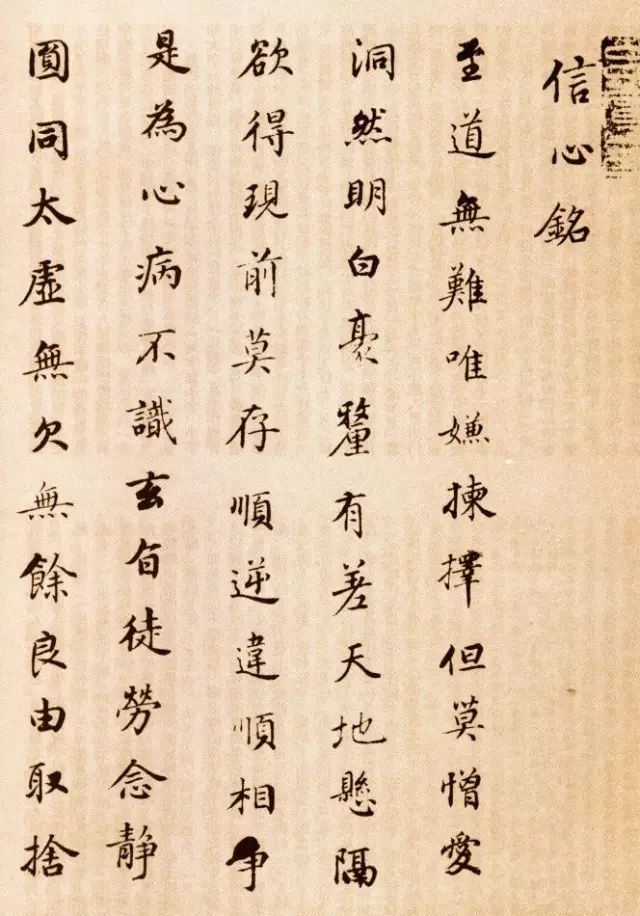 信心銘
至道無難唯嫌揀擇但莫憎愛
洞然明白豪釐有差天地懸隔
欲得現前莫存順逆違順相爭
是為心病不識玄旨徒勞念靜
圓同太虛無欠無餘良由取捨